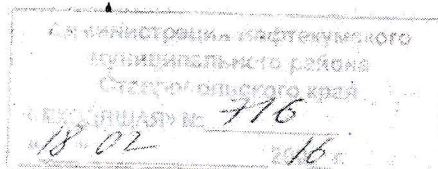 Администрация Нефтекумского
муниципального района
Ставропольского края
ВХОДЯЩАЯ № 716
18 02 2016 г.